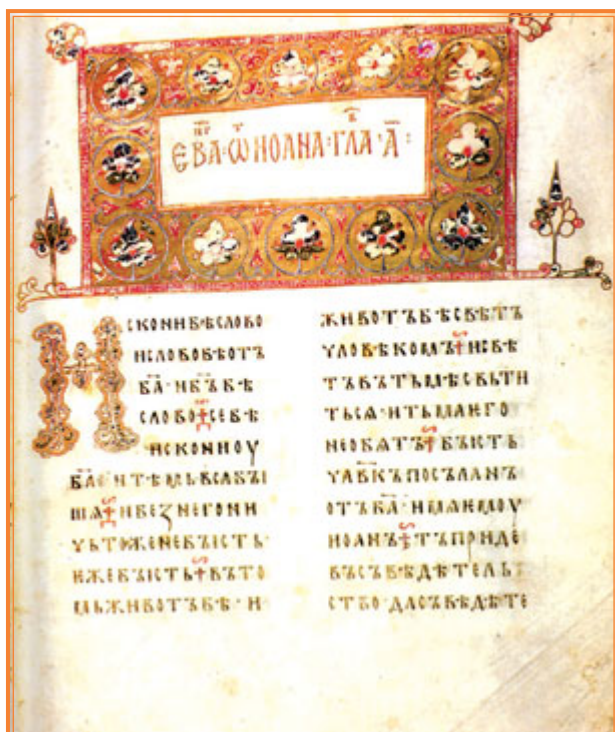 ЄВА꙽НГ·Ѿ·ИОАНА·ГЛА꙽В·А҃:
ИСКОНИБѢСЛОВО
ИСЛОВОБѢОТЪ
БА҃·ИБЪ҃БѢ
СЛОВО·СЕБѢ
ИСКОНИОУ
БА҃·ИТѢМЬВСАБЪІ
ШѦ·ИБЕЗНЕГОНИ
ЧЬТОЖЕНЕБЪІСТЬ·
ИЖЕБЪІСТЬ·ВЪТО
МЬЖИВОТЪБѢ·И
ЖИВОТЪБѢСВѢТЪ
ЧЛОВѢКОМЪ·ИСВѢ
ТЪВЪТЬМѢСВЬТИ
ТЬСѦ·ИТЬМАѤГО
НЕОБѦТЪ·БЪІСТЬ
ЧЛ҃ВКЪПОСЪЛАНЪ
ОТЪБА҃·ИМѦѤМОУ
ИОАНЪ·ТЪПРИДЕ
ВЪСЪВѢДѢТЕЛЬ
СТВО·ДАСЪВѢДѢТЕ